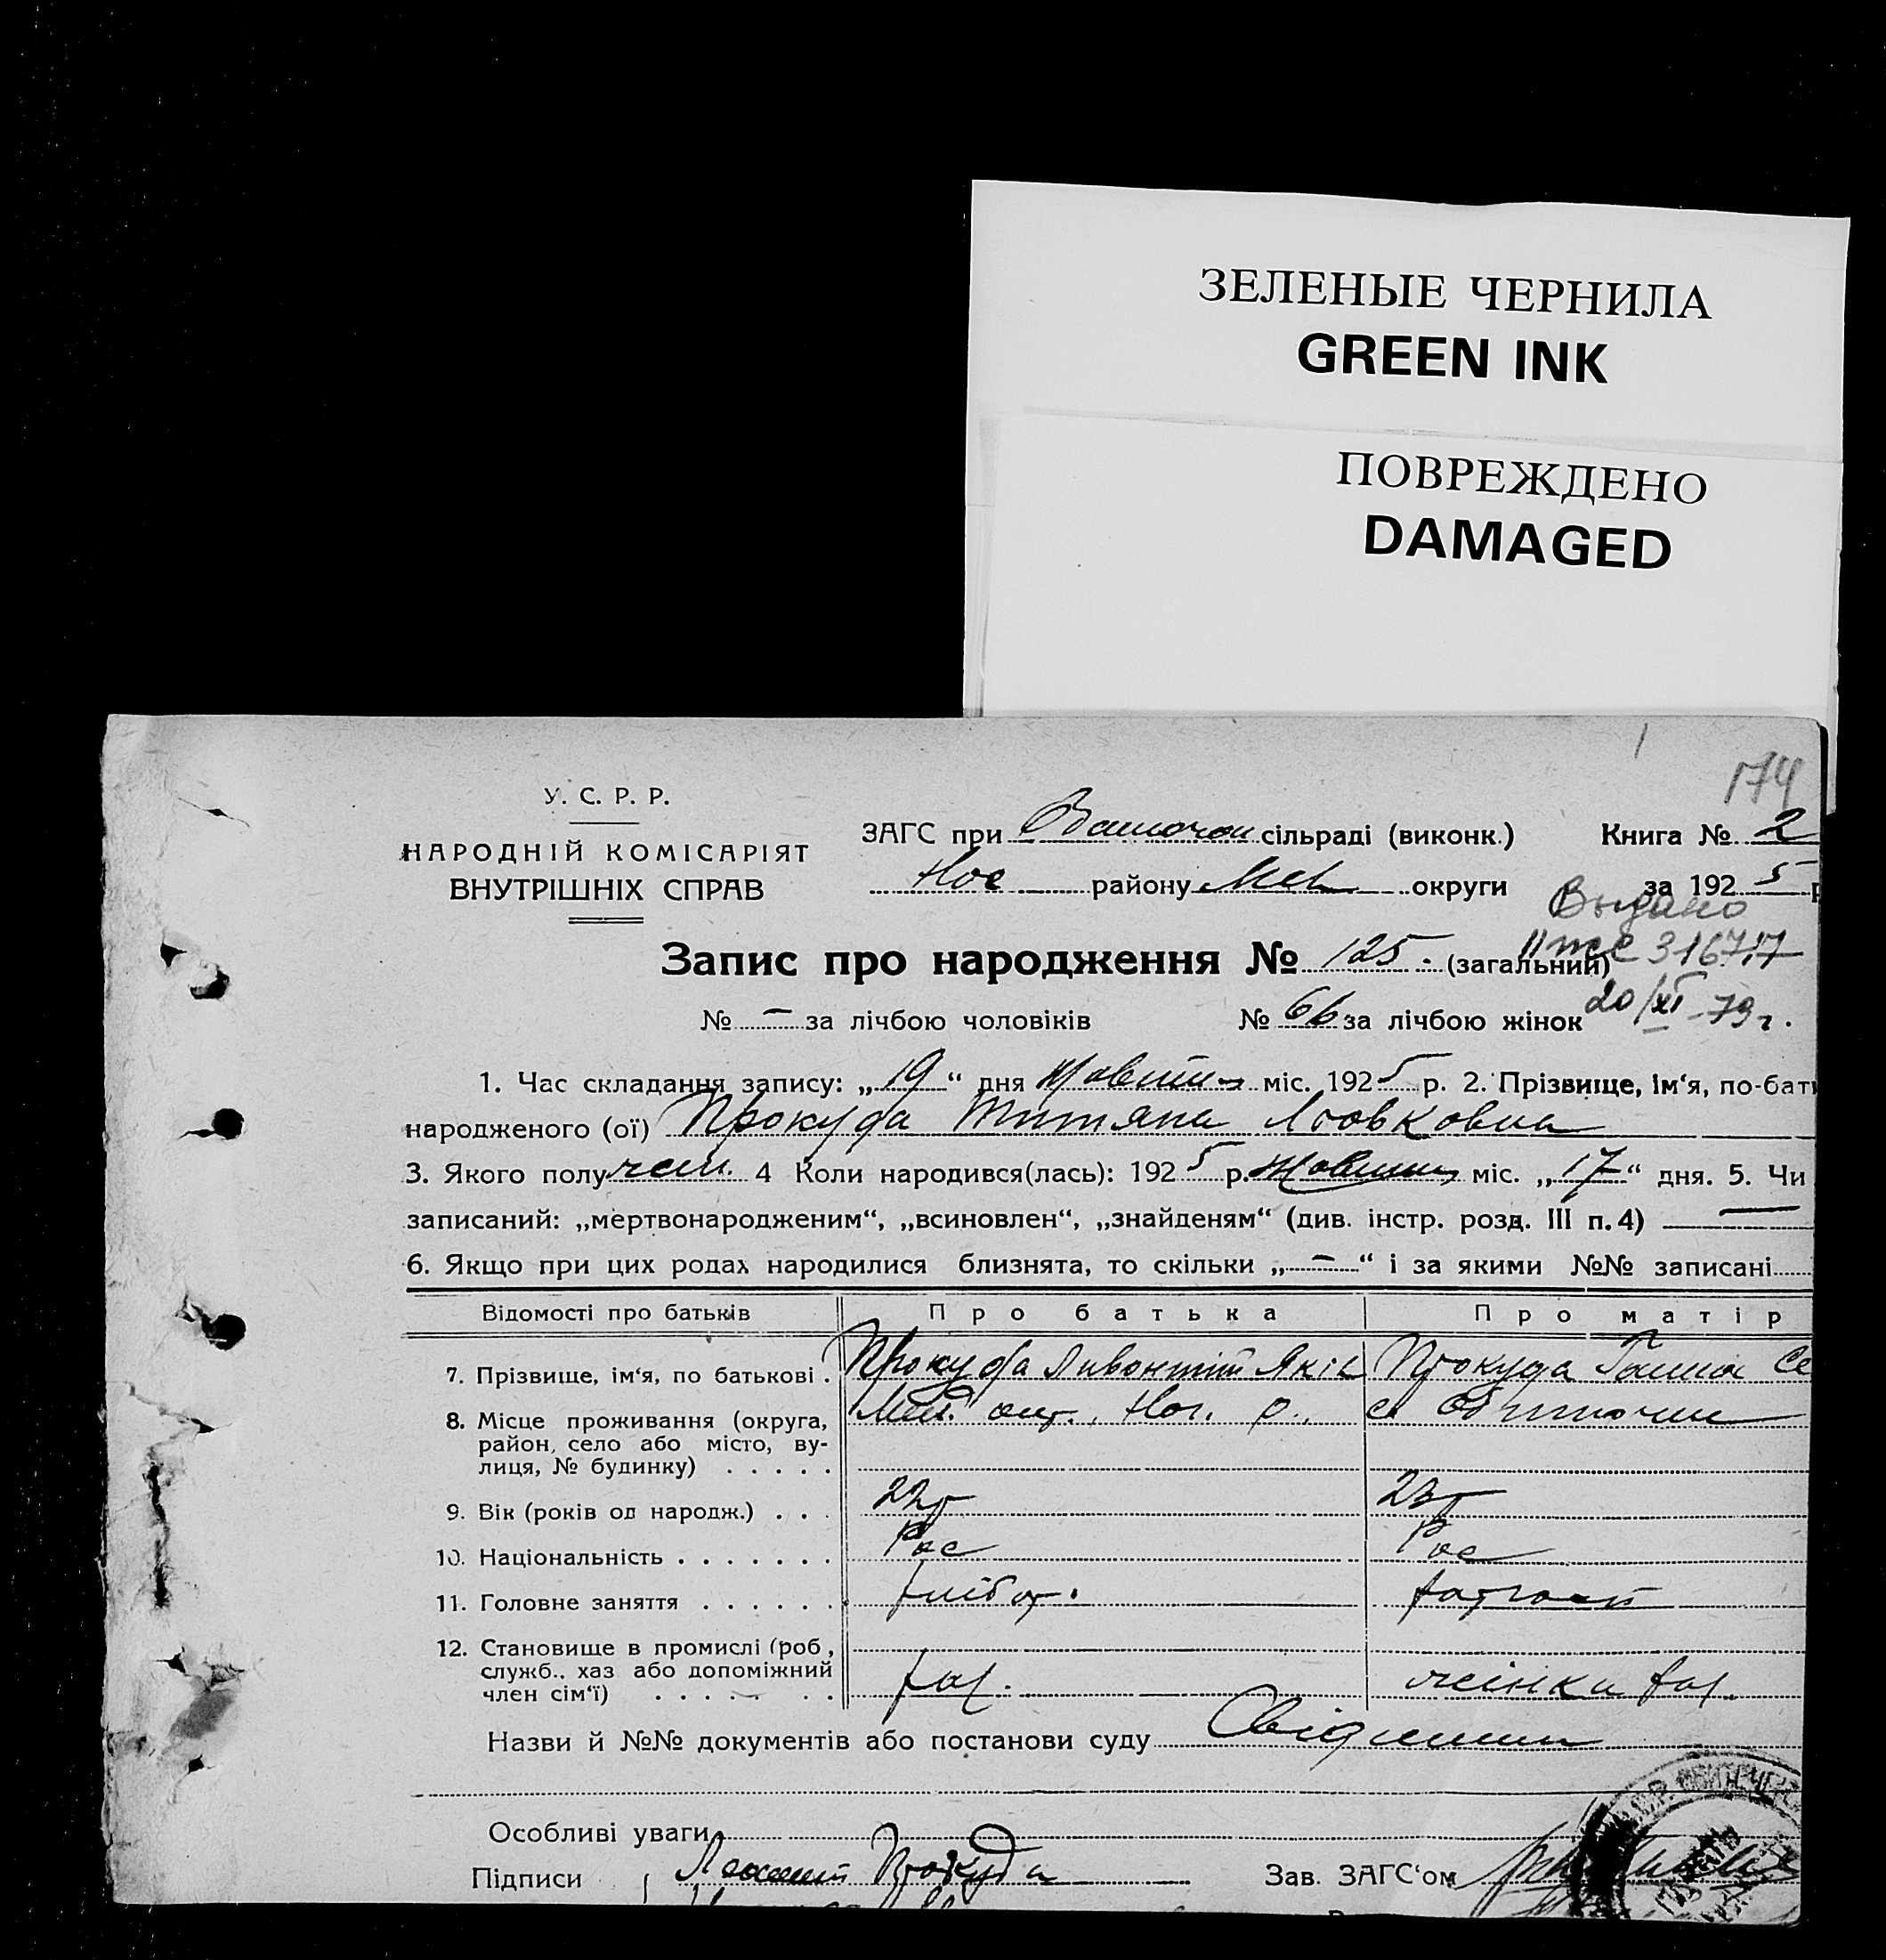 ЗЕЛЕНЫЕ ЧЕРНИЛА
GREEN INK
ПОВРЕЖДЕНО
DAMAGED
174
У. С. Р. Р.
НАРОДНІЙ КОМІСАРІЯТ
ВНУТРІШНІХ СПРАВ
ЗАГС при сільраді (виконк.) Книга № 2
Нос району округи за 1925 р
Выдано
316717
Запис про народження № 125. (загальний)
20/XI-79г.
№ – за лічбою чоловіків № 66 за лічбою жінок
1. Час складання запису: „19“ дня Жовтн міс. 1925 р. 2. Прізвище, ім‘я, по-бать
народженого (ої) Прокуда Титяна
3. Якого полу жен. 4 Коли народився(лась): 1925 р. Жовтн міс. „17“ дня. 5. Чи
записаний: „мертвонародженим“, „всиновлен“, „знайденям“ (див. інстр. розд. III п. 4) —
6. Якщо при цих родах народилися близнята, то скільки „–“ і за якими №№ записані
Відомості про батьків Про батька Про матір
7. Прізвище, ім‘я, по батькові . Прокуда Прокуда Ганна Се
8. Місце проживання (округа,
район, село або місто, ву-
лиця, № будинку) . . . . .
окр., Нос. р., с.
9. Вік (років од народж.) . . . 22р 23р
10. Національність . . . . . . . Рос Рос
11. Головне заняття . . . . . . хлібор.
12. Становище в промислі (роб,
служб., хаз або допоміжний
член сім‘ї) . . . . . . .
хаз. жінка хаз.
Назви й №№ документів або постанови суду
Особливі уваги
Підписи Прокуда Зав. ЗАГС‘ом